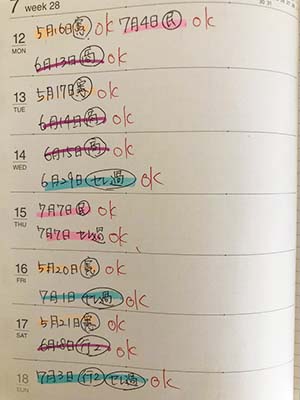 7 week 28
12 5月16日 憲 ok 7月4日 民 ok
MON 6月13日
13 5月17日 憲 ok
TUE 6月14日 ok
14 6月15日 ok
WED 6月29日 セレ過 ok
15 7月7日 民 ok
THU 7月7日 セレ過 ok
16 5月20日 憲 ok
FRI 7月1日 セレ過 ok
17 5月21日 憲 ok
SAT 6月18日 行2 ok
18 7月3日 行2 セレ過 ok
SUN